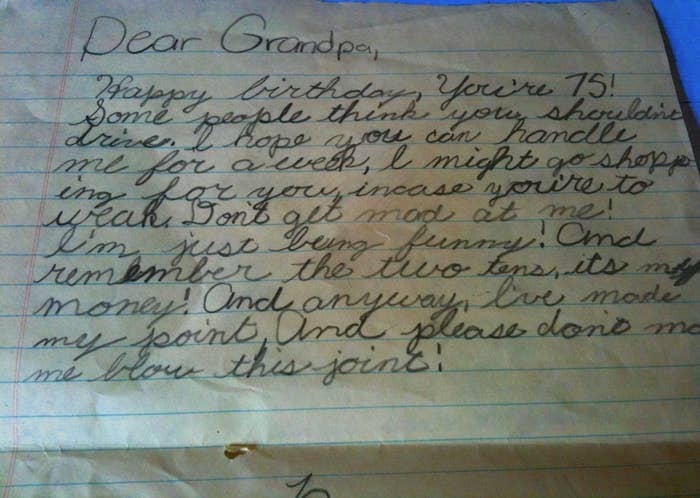 Dear Grandpa,
Happy birthday, You're 75!
Some people think you shouldn't
drive. I hope you can handle
me for a week, I might go shopp
ing for you, incase you're to
weak. Don't get mad at me!
I'm just being funny! And
remember the two tens, its my
money! And anyway, I've made
my point, And please don't
me blow this joint!